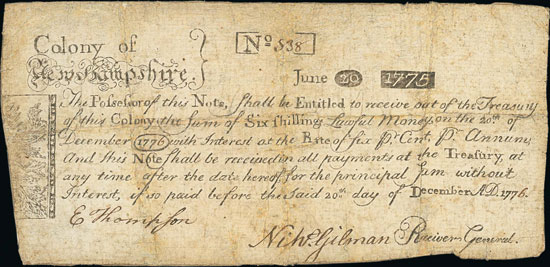 Colony of
New Hampshire.
No. 538
June 20 1775
The Possessor of this Note, shall be Entitled to receive out of the Treasury
of this Colony, the sum of Six shillings Lawful Money, on the 20th of
December 1776 with Interest at the Rate of six Pr. Cent. Pr. Annum;
And this Note shall be received in all payments at the Treasury, at
any time after the date hereof, for the principal sum without
Interest, if so paid before the said 20th day of December A.D. 1776.
E Thompson
Nichs. Gilman Receiver General.